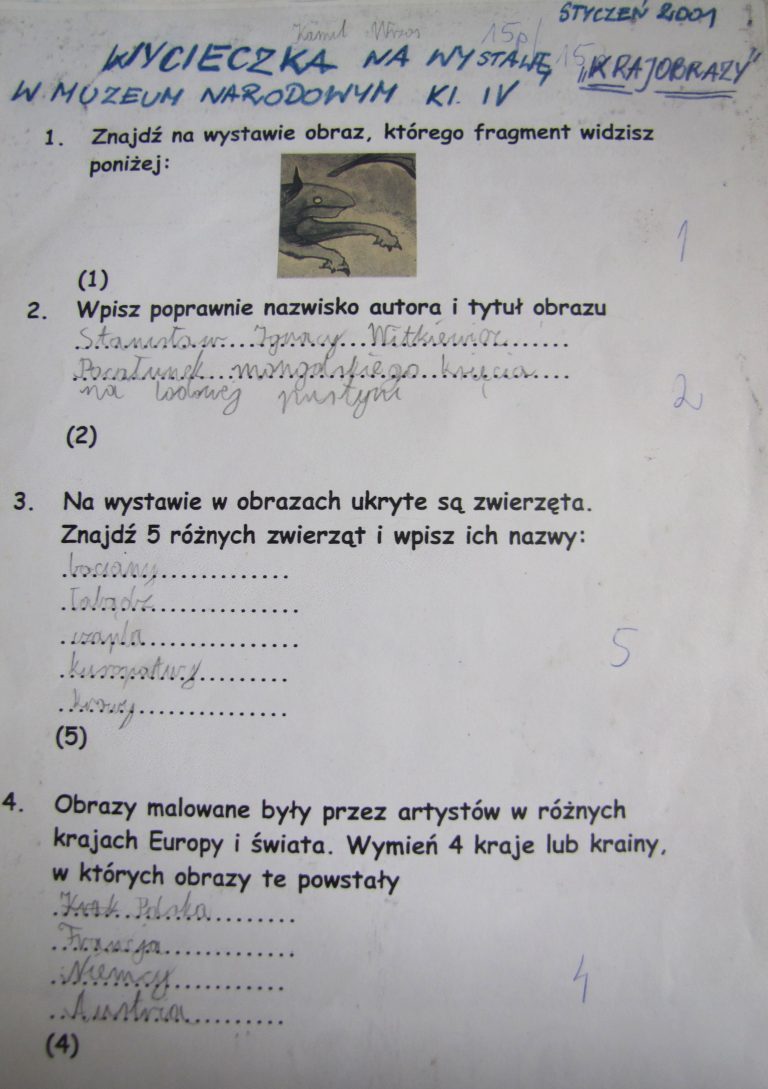 STYCZEŃ 2001
Kamil Wrzos 15p/15
WYCIECZKA NA WYSTAWĘ „KRAJOBRAZY”
W MUZEUM NARODOWYM KL. IV
1. Znajdź na wystawie obraz, którego fragment widzisz
poniżej:
1
(1)
2. Wpisz poprawnie nazwisko autora i tytuł obrazu
Stanisław Ignacy Witkiewicz
Pocałunek mongolskiego księcia
na lodowej pustyni
2
(2)
3. Na wystawie w obrazach ukryte są zwierzęta.
Znajdź 5 różnych zwierząt i wpisz ich nazwy:
bociany
łabędź
czapla
kuropatwy
krowy
5
(5)
4. Obrazy malowane były przez artystów w różnych
krajach Europy i świata. Wymień 4 kraje lub krainy,
w których obrazy te powstały
Polska
Francja
Niemcy
Austria
4
(4)